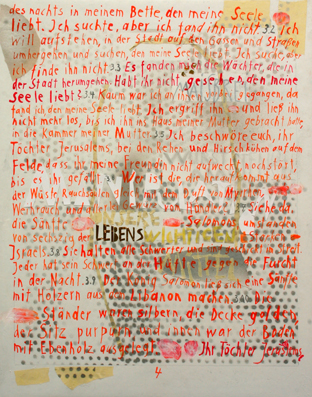 des nachts in meinem Bette, den meine Seele
liebt. Ich suchte, aber ich fand ihn nicht. 3.2 Ich
will aufstehen, in der Stadt auf den Gassen und Straßen
umhergehen und suchen, den meine Seele liebt. Ich suchte, aber
ich finde ihn nicht. 3.3 Es fanden mich die Wächter, die in
der Stadt herumgehn: Habt ihr nicht gesehen, den meine
Seele liebt? 3.4 Kaum war ich an ihnen vorüber gegangen, da
fand ich den meine Seele liebt. Ich ergriff ihn und ließ ihn
nicht mehr los, bis ich ihn ins Haus meiner Mutter gebracht hatte,
in die Kammer meiner Mutter. 3.5 Ich beschwöre euch, ihr
Töchter Jerusalems, bei den Rehen und Hirschkühen auf dem
Felde dass ihr meine Freundin nicht aufweckt noch stört,
bis es ihr gefällt. 3.6 Wer ist die, die herauf kommt aus
der Wüste, Rauchsäulen gleich, mit dem Duft von Myrrhen,
Weihrauch und
die Sänfte Salomons, umstanden
UNSERE
LEBENS
von sechzig der Starken
Israels. 3.8 Sie halten alle Schwerter und sind
Jeder hat sein Schwert an der Hüfte gegen die Furcht
in der Nacht. 3.9 Der König Salomon ließ sich eine Sänfte
mit Hölzern aus dem Libanon machen. Die
Ständer waren silbern, die Decke golden,
der Sitz purpurn und innen war der Boden
mit Ebenholz ausgelegt. Ihr Töchter Jerusalems,
4